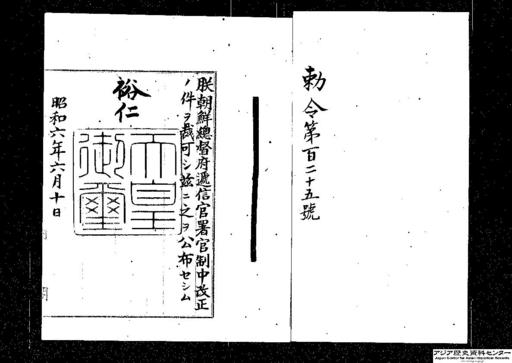 勅令第百二十五號
朕朝鮮總督府遞信官署官制中改正
ノ件ヲ裁可シ茲ニ之ヲ公布セシム
裕仁
天皇御璽
昭和六年六月十日
アジア歴史資料センター
Japan Center for Asian Historical Records